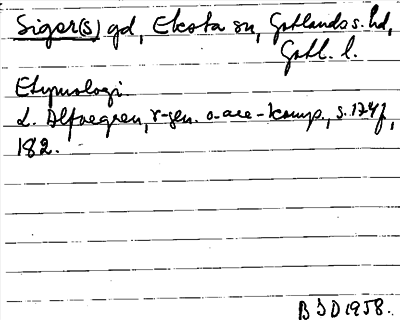 Siger(s) gd, Eketa sn, Gotlands s. hd,
Gotl. l.
Etymologi.
L. Alfvegren, r-gen. o-ase-komp., s. 174f,
182.
BSD 1958.